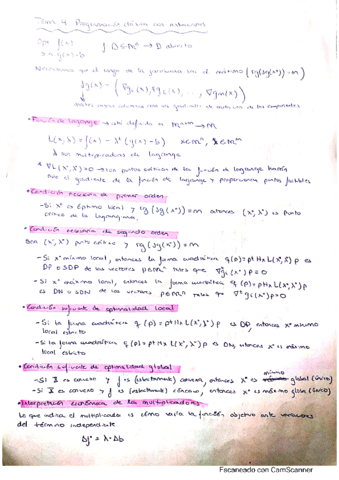 Tema 4. Programación clásica con restricciones
Opt f(x)
s.a g(x)=b
D⊆ℝⁿ → D abierto
Necesitamos que el rango de la jacobiana en el máximo (rg(Jg(x*))=m)
Jg(x) = (∇g₁(x), ∇g₂(x), ..., ∇gₘ(x))
matriz cuyas columnas son los gradientes de cada una de las componentes
• Función de lagrange → está definida en ℝᵐ⁺ⁿ → ℝ
L(x,λ) = f(x) - λᵗ(g(x)-b) x∈ℝⁿ, λ∈ℝᵐ
λ son multiplicadores de lagrange
∇L(x*,λ*)=0 → los puntos críticos de la función de lagrange
el gradiente de la función de lagrange y proporcionan puntos factibles
• Condición necesaria de primer orden:
- Si x* es óptimo local y rg(Jg(x*))=m, entonces (x*,λ*) es punto
crítico de la lagrangiana.
• Condición necesaria de segundo orden:
Sea (x*,λ*) punto crítico y rg(Jg(x*))=m
- Si x* mínimo local, entonces la forma cuadrática q(p)=pᵗHxL(x*,λ*)p es
DP o SDP de los vectores p∈ℝⁿ tales que
- Si x* máximo local, entonces la forma cuadrática q(p)=pᵗHxL(x*,λ*)p
es DN o SDN de los vectores p∈ℝⁿ tales que
• Condición suficiente de optimalidad local:
- Si la forma cuadrática q(p)=pᵗHxL(x*,λ*)p es DP, entonces x* mínimo
local estricto
- Si la forma cuadrática q(p)=pᵗHxL(x*,λ*)p es DN, entonces x* es máximo
local estricto
• Condición suficiente de optimalidad global
mínimo
- Si X es convexo y f es (estrictamente) convexa, entonces x* es global (único)
- Si X es convexo y f es (estrictamente) cóncava, entonces x* es máximo global (único)
• Interpretación económica de los multiplicadores:
Lo que indica el multiplicador es cómo varía la función objetivo ante variaciones
del término independiente
Δf* ≈ λ·Δb
Escaneado con CamScanner